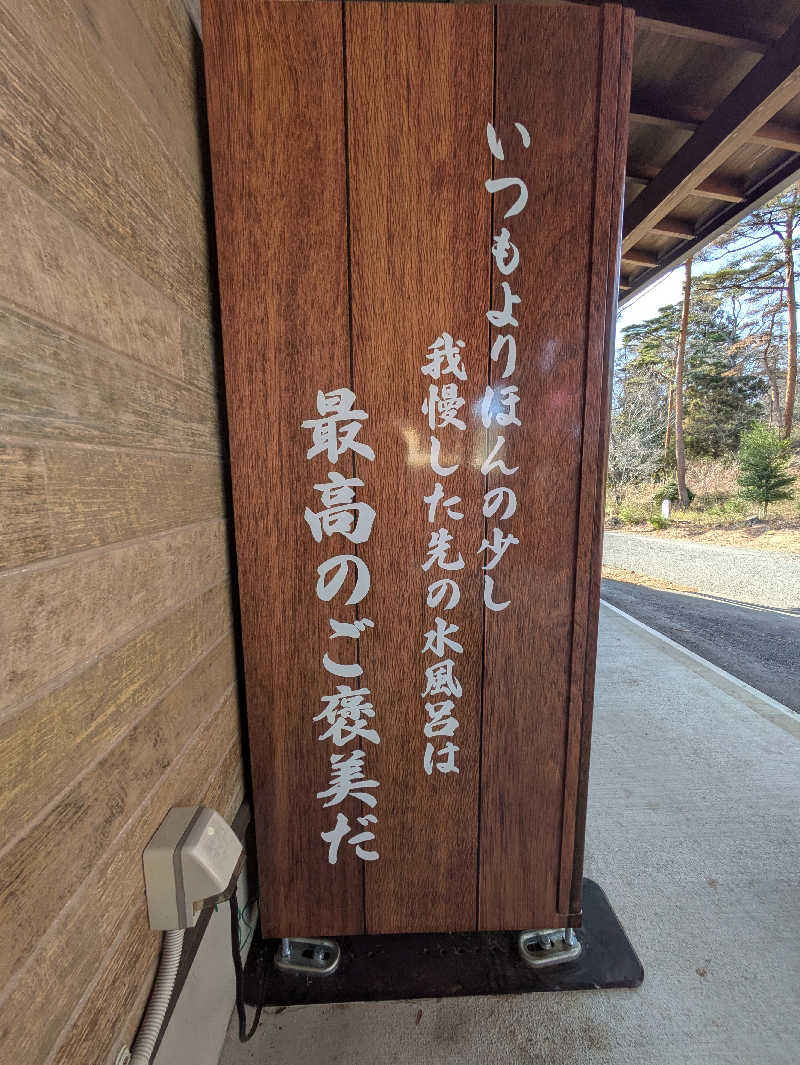 いつもよりほんの少し
我慢した先の水風呂は
最高のご褒美だ